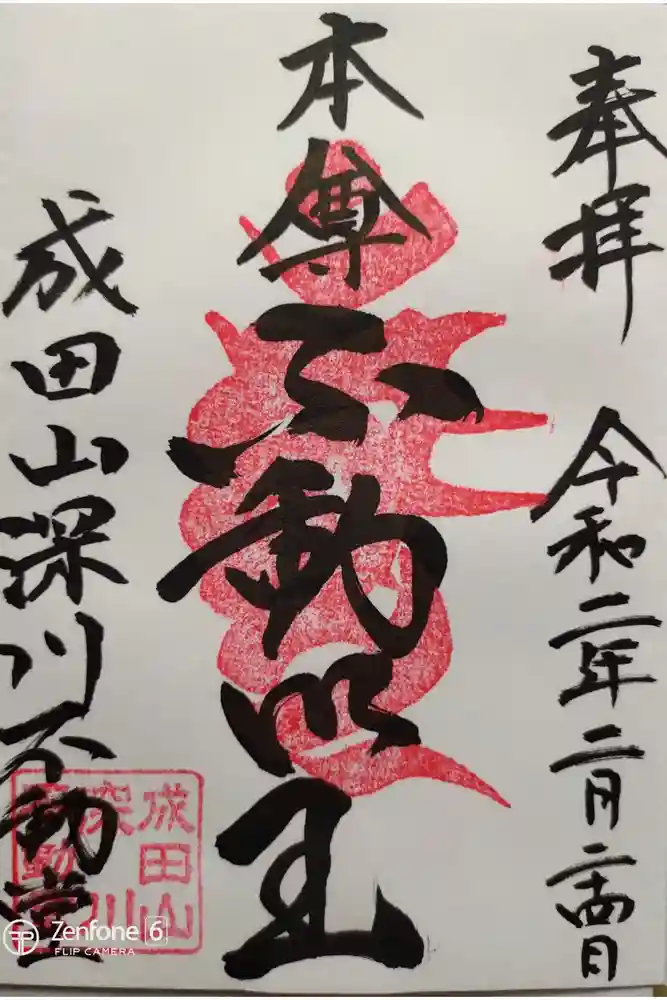 奉拝
令和二年二月二十四日
本尊不動明王
成田山深川不動堂
成田山
深川
Zenfone 6
FLIP CAMERA